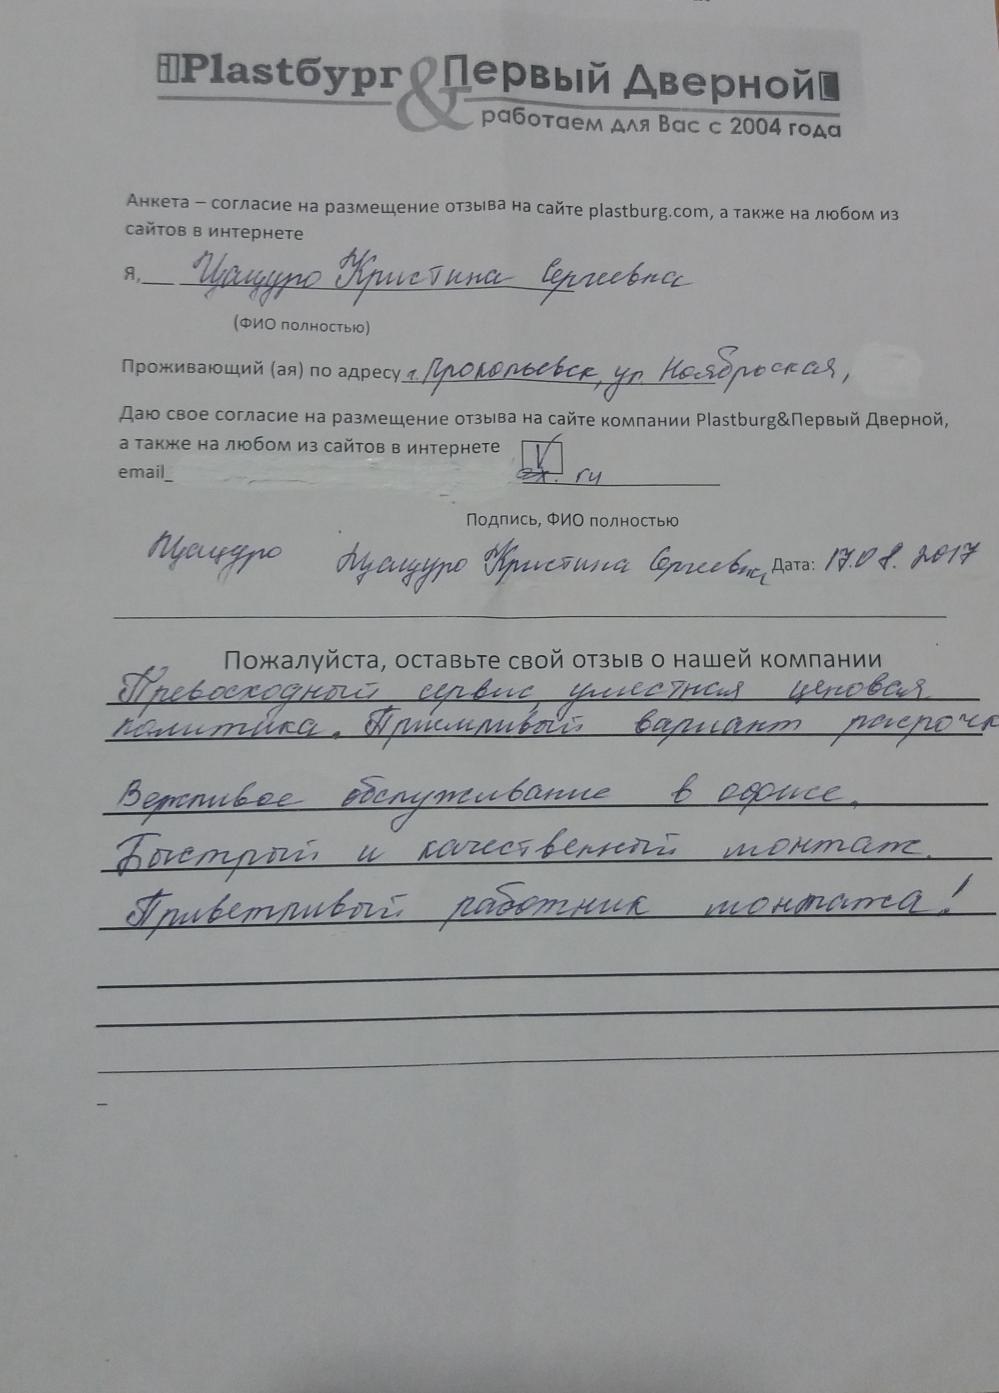 Plastбург & Первый Дверной
работаем для Вас с 2004 года
Анкета – согласие на размещение отзыва на сайте plastburg.com, а также на любом из
сайтов в интернете
Я, Цацуро Кристина Сергеевна
(ФИО полностью)
Проживающий (ая) по адресу г. Прокопьевск, ул. Ноябрьская,
Даю свое согласие на размещение отзыва на сайте компании Plastburg&Первый Дверной,
а также на любом из сайтов в интернете V
email_ ru
Подпись, ФИО полностью
Цацуро Цацуро Кристина Сергеевна Дата: 17.08.2017
Пожалуйста, оставьте свой отзыв о нашей компании
Превосходный сервис, уместная ценовая
политика. Приемливый вариант расрочк
Вежливое обслуживание в офисе.
Быстрый и качественный монтаж.
Приветливый работник монтажа!